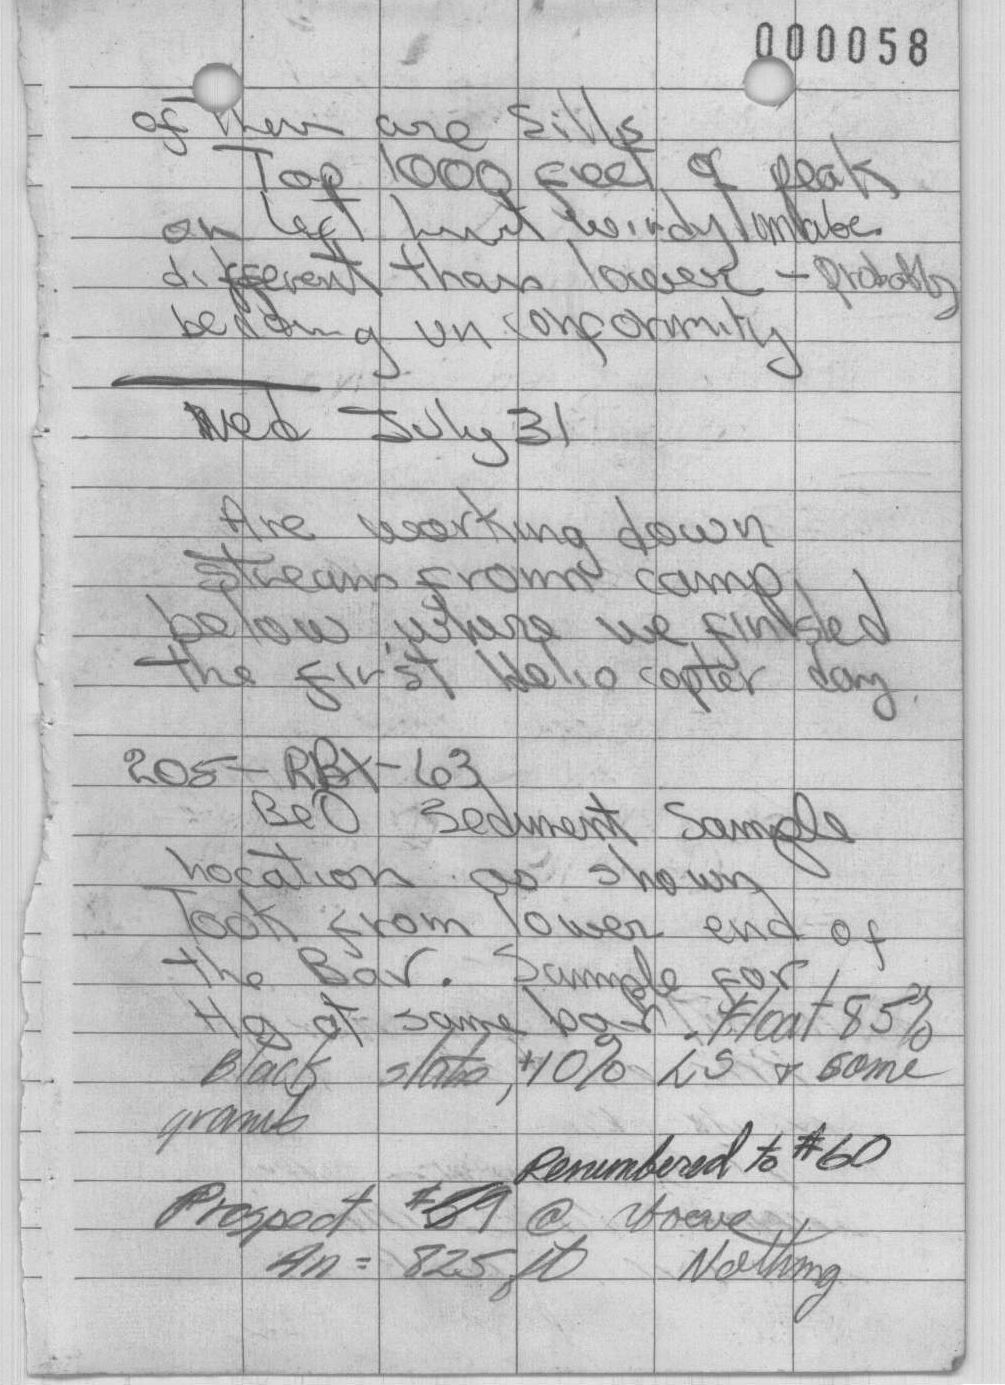 000058
of them are Sills
Top 1000 feet of peak
on left limit windy
different than lower - probably
bedding unconformity
Wed July 31
Are working down
stream from camp
below where we finished
the first Heliocopter day.
205-RBX-63
BeO Sediment Sample
Location as shown
Took from lower end of
the Bar. Sample for
Hg at same bar. Float 85%
Black slate, +10% LS & some
granite
Renumbered to #60
Prospect #59 @ above
An = 825 ft Nothing